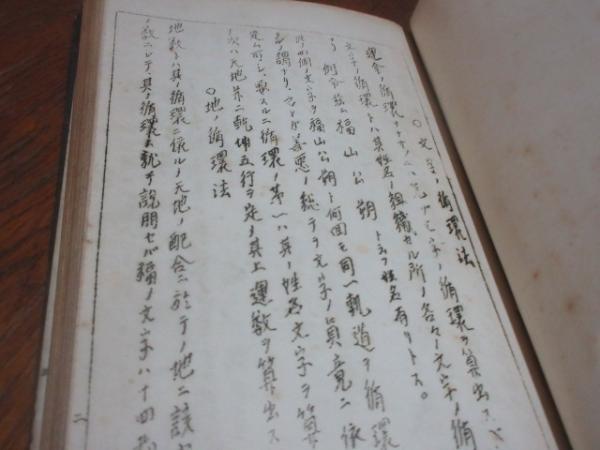 ○文字ノ循環法
運命ノ循環ヲナスニハ先ヅ文字ノ循環ヲ算出ス
文字ノ循環トハ其姓名ノ組織セル所ノ各々ノ文字ノ循
例令茲ニ福山公朔トネフ姓名有リトス。
此ノ四個ノ文字ヲ福山公朔ト何回モ同一軌道ヲ循環
謂ナリ、善悪ノ総テヲ文字ノ員竟ニ依
定ム可シ、要スルニ循環ノ第一ハ其ノ姓名文字ヲ算
次ハ天地并ニ乾坤五行ヲ定メ其上運数ヲ算出ス
○地ノ循環法
地数トハ其ノ循環ニ依ルノ天地ノ配合ニ於テノ地ニ該
ノ数ニシテ、其ノ循環ニ就テ説明セバ福ノ文字ハ十四
二